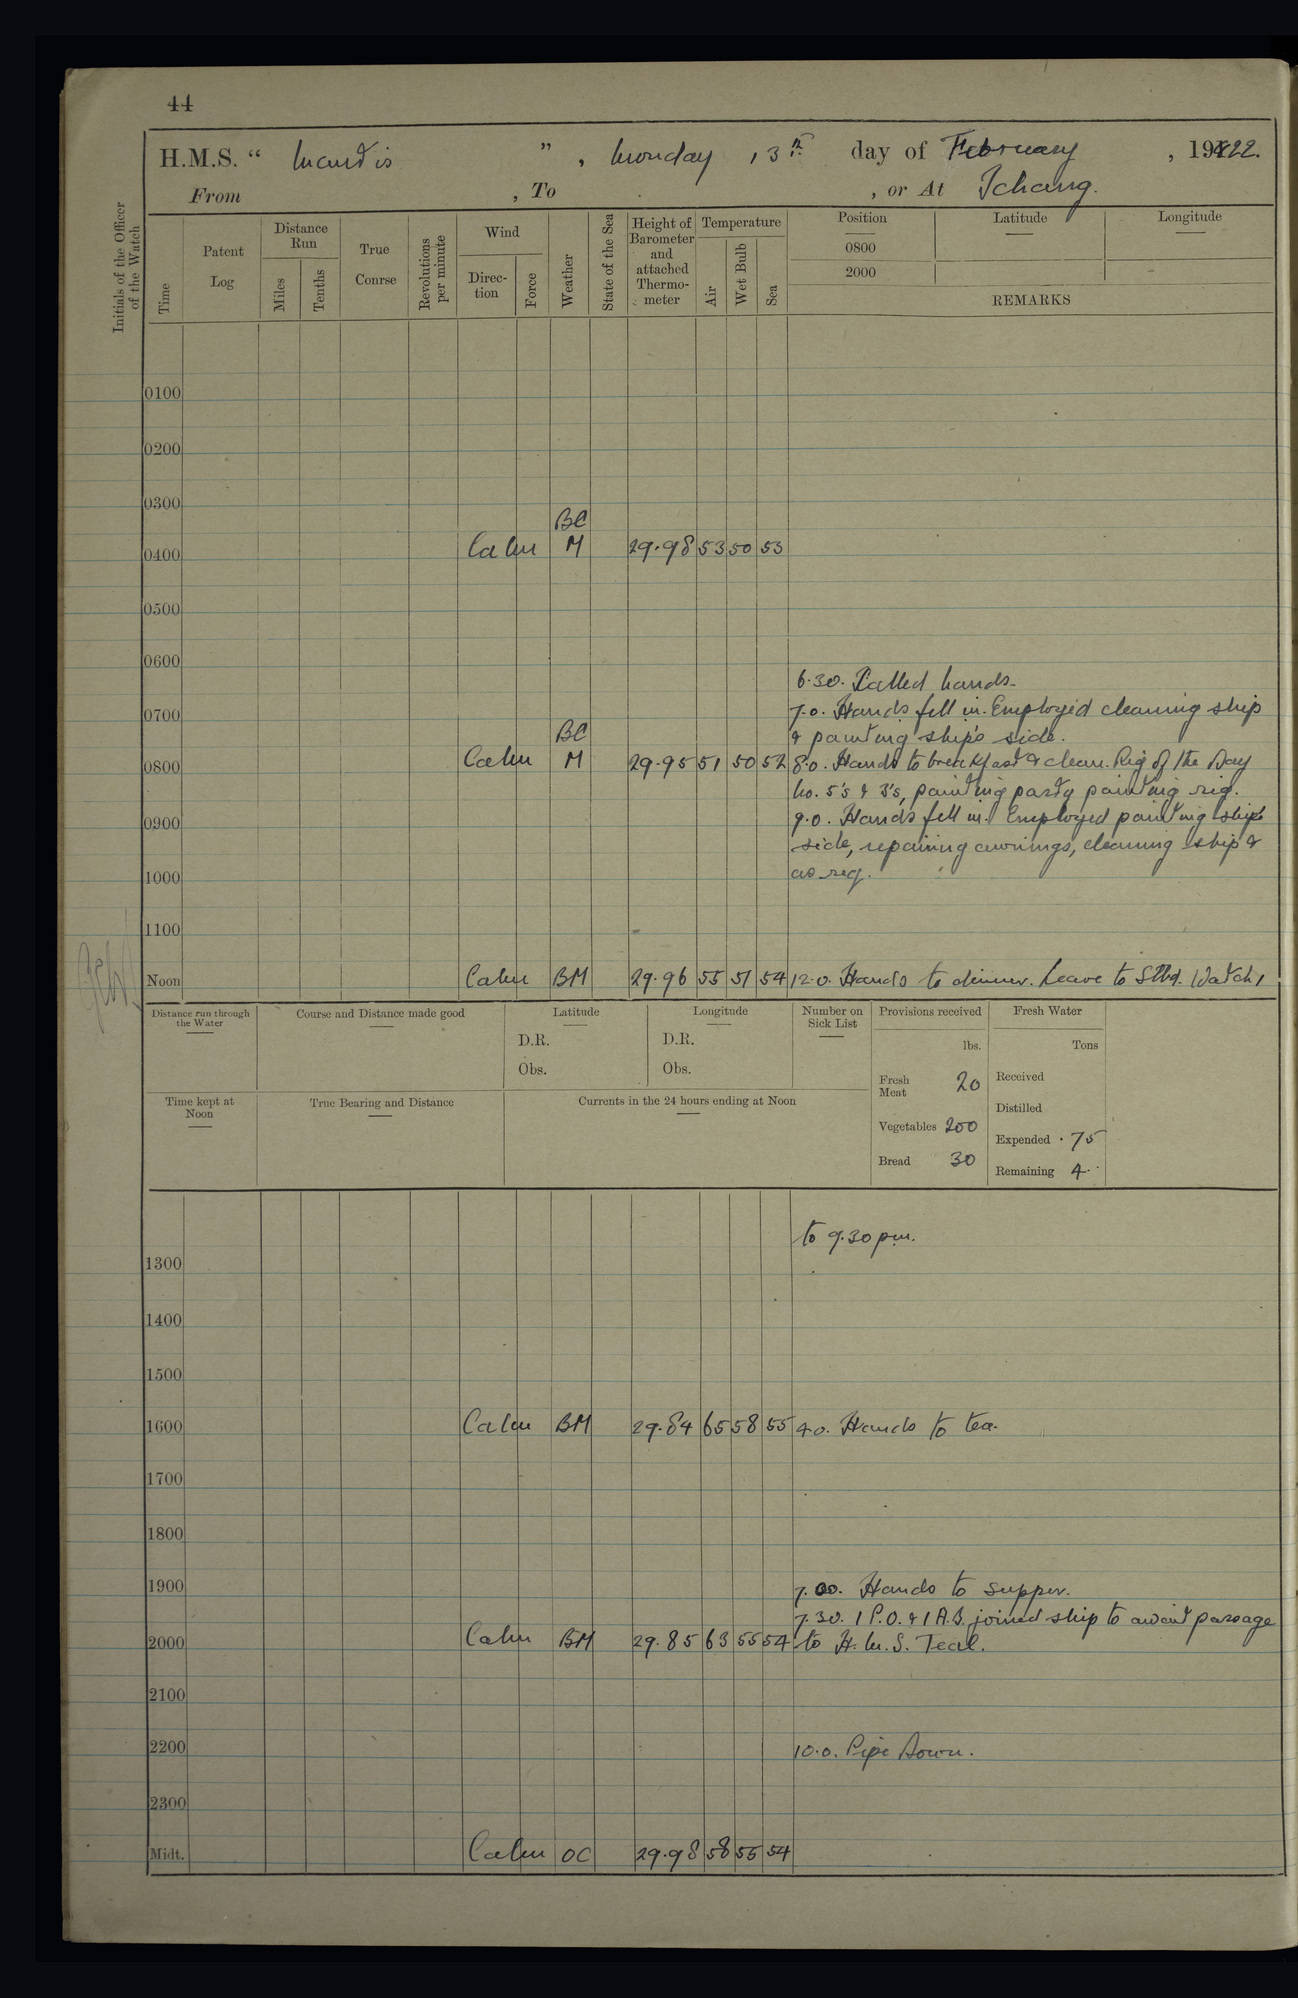 44
H.M.S. “ Mantis ” , Monday , 13th day of February , 1922.
From , To , or At Ichang.
Initials of the Officer of the Watch
Time
Patent Log
Distance Run
Miles
Tenths
True Course
Revolutions per minute
Wind
Direc-tion
Force
Weather
State of the Sea
Height of Barometer and attached Thermo-meter
Temperature
Air
Wet Bulb
Sea
Position
Latitude
Longitude
0800
2000
REMARKS
0100
0200
0300
BC
0400 Calm M 29.98 53 50 53
0500
0600
6.30. Called hands.
0700 7.0. Hands fell in. Employed cleaning ship
BC & painting ship's side.
0800 Calm M 29.95 51 50 52 8.0. Hands to breakfast & clean. Rig of the Day
No. 5's & 3's, painting party painting rig.
0900 9.0. Hands fell in. Employed painting ship's
side, repairing awnings, cleaning ship &
1000 as req.
1100
Noon Calm BM 29.96 55 51 54 12.0. Hands to dinner. Leave to Stbd. Watch,
Distance run through the Water
Course and Distance made good
Latitude
D.R.
Obs.
Longitude
D.R.
Obs.
Number on Sick List
Provisions received
lbs.
Fresh Meat 20
Vegetables 200
Bread 30
Fresh Water
Tons
Received
Distilled
Expended .75
Remaining 4.
Time kept at Noon
True Bearing and Distance
Currents in the 24 hours ending at Noon
to 9.30 pm.
1300
1400
1500
1600 Calm BM 29.84 65 58 55 4.0. Hands to tea.
1700
1800
1900 7.00. Hands to supper.
7.30. 1 P.O. & 1 A.B. joined ship to await passage
2000 Calm BM 29.85 63 55 54 to H.M.S. Teal.
2100
2200 10.0. Pipe Down.
2300
Midt. Calm OC 29.98 58 55 54